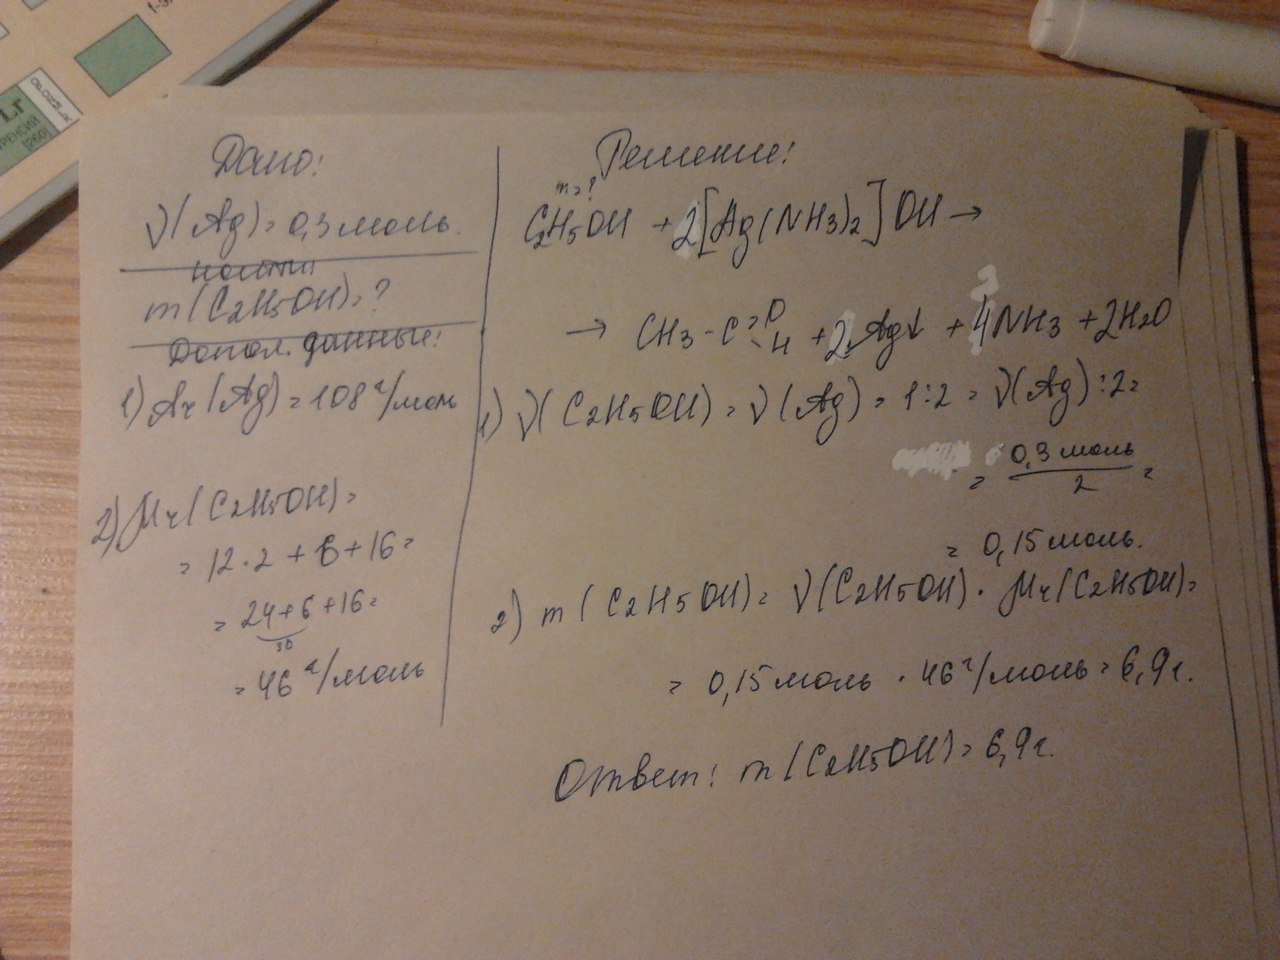 1-9
Lr
ЛОУРЕНСИЙ
[260]
Дано:
ν(Ag)=0,3 моль.
найти
m(C2H5OH)=?
Допол. данные:
1) Ar(Ag)=108 г/моль
2) Mr(C2H5OH)=
=12·2+6+16=
=24+6+16=
30
=46 г/моль
Решение:
m=?
C2H5OH + 2[Ag(NH3)2]OH →
→ CH3-C=O-H + 2Ag↓ + 4NH3 + 2H2O
1) ν(C2H5OH)=ν(Ag)=1:2=ν(Ag):2=
= 0,3 моль / 2 =
= 0,15 моль.
2) m(C2H5OH)=ν(C2H5OH)·Mr(C2H5OH)=
= 0,15 моль · 46 г/моль = 6,9 г.
Ответ: m(C2H5OH)=6,9 г.